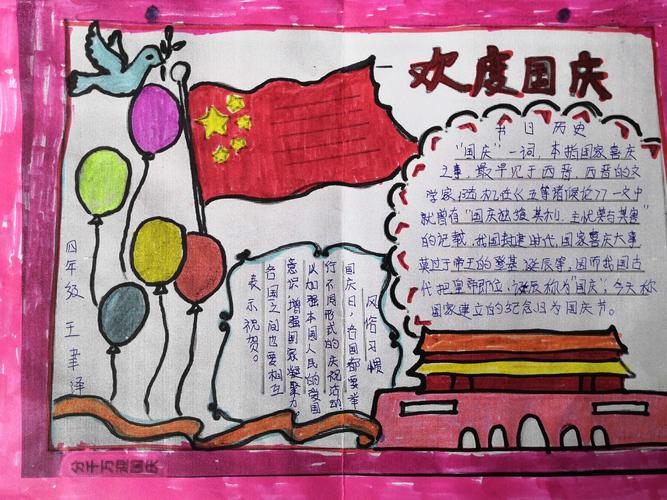 欢度国庆
节日历史
"国庆"一词,本指国家喜庆
之事,最早见于西晋。西晋的文
学家陆机在《五等诸侯论》一文中
就曾有"国庆独飨其利,主忧莫与其害"
的记载、我国封建时代、国家喜庆大事、
莫过于帝王的登基、诞辰等,因而我国古
代把皇帝即位、诞辰称为"国庆",今天称
国家建立的纪念日为国庆节。
风俗习惯
国庆日,各国都要举
行不同形式的庆祝活动
以加强本国人民的爱国
意识,增强国家凝聚力。
各国之间也要相互
表示祝贺。
四年级 王